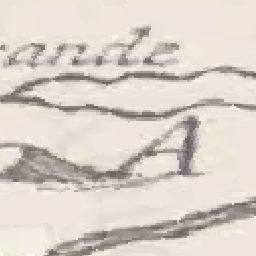 rande
A